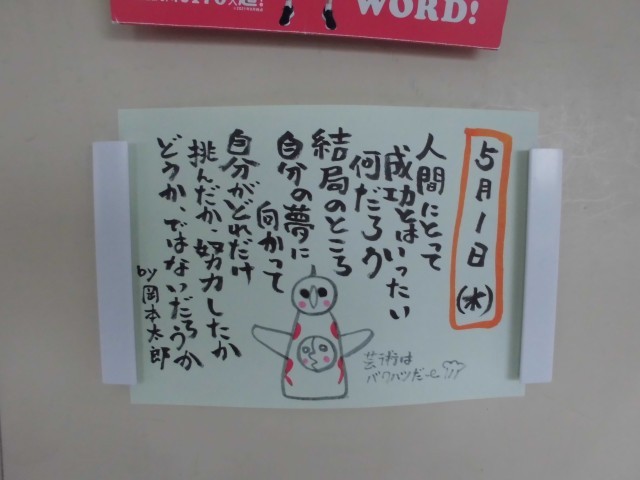 WORD!
5月1日(水)
人間にとって
成功とはいったい
何だろう
結局のところ
自分の夢に
向かって
自分がどれだけ
挑んだか、努力したか
どうか、ではないだろうか
by岡本太郎
芸術は
バクハツだーっ